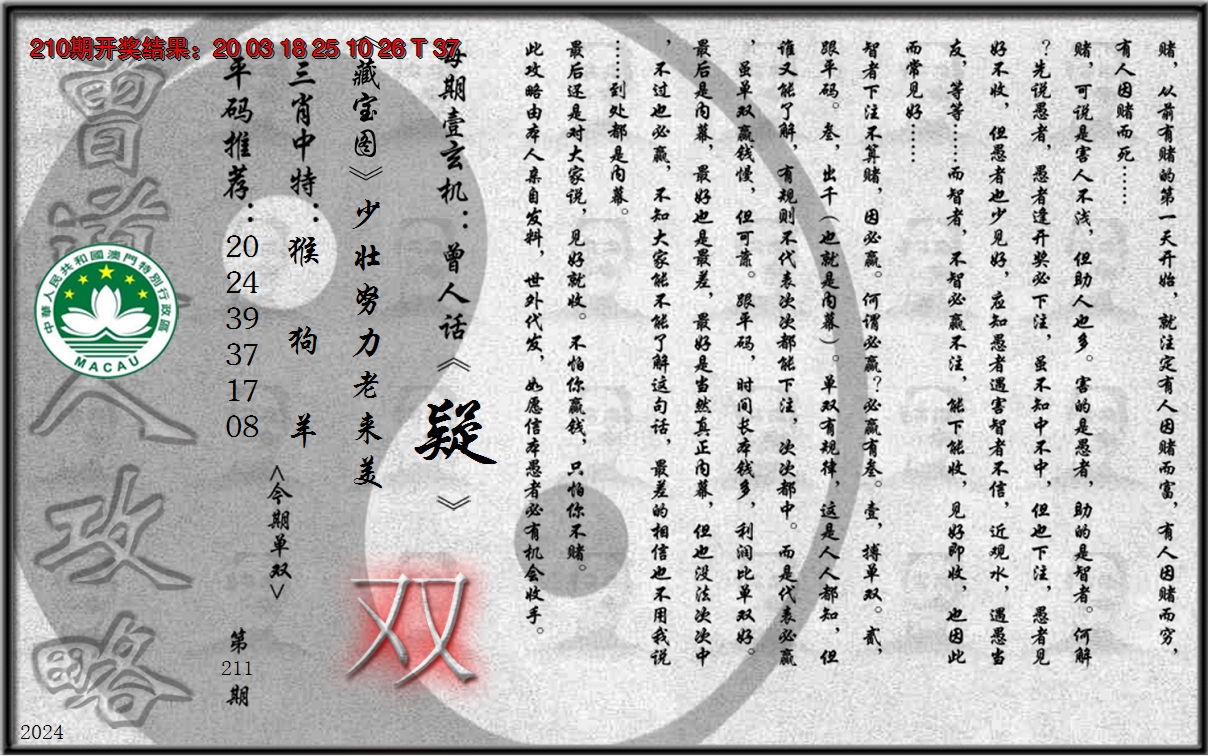 210期开奖结果：20 03 18 25 10 26 T 37
赌，从前有赌的第一天开始，就注定有人因赌而富，有人因赌而穷，
有人因赌而死……
赌，可说是害人不浅，但助人也多。害的是愚者，助的是智者。何解
？先说愚者，愚者逢开奖必下注，虽不知中不中，但也下注，愚者见
好不收，但愚者也少见好，应知愚者遇害智者不信，近观水，遇愚当
友，等等……而智者，不智必赢不注，能下能收，见好即收，也因此
而常见好……
智者下注不算赌，因必赢。何谓必赢？必赢有叁。壹，搏单双。贰，
跟平码。叁，出千（也就是内幕）。单双有规律，这是人人都知，但
谁又能了解，有规则不代表次次都能下注，次次都中。而是代表必赢
，虽单双赢钱慢，但可靠。跟平码，时间长本钱多，利润比单双好。
最后是内幕，最好也是最差，最好是当然真正内幕，但也没法次次中
，不过也必赢，不知大家能不能了解这句话，最差的相信也不用我说
……到处都是内幕。
最后还是对大家说，见好就收。不怕你赢钱，只怕你不赌。
此攻略由本人亲自发料，世外代发，如愿信本愚者必有机会收手。
每期壹玄机：曾人话《疑》
《藏宝图》少壮努力老来美
双
三肖中特：猴 狗 羊
<今期单双>
平码推荐：20 24 39 37 17 08
第211期
曾道人攻略
中華人民共和國澳門特別行政區
MACAU
2024